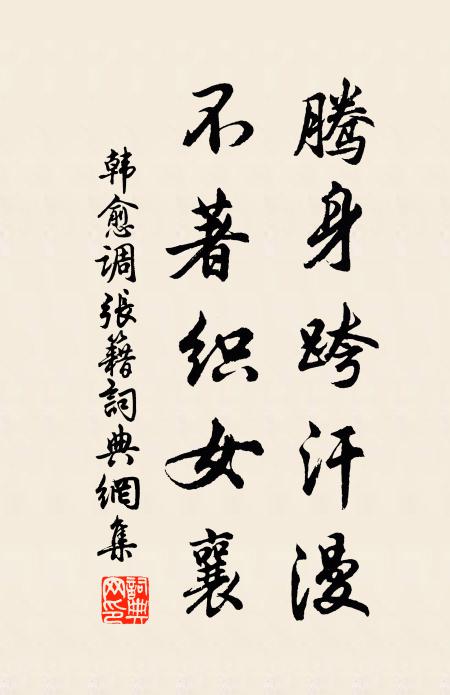 腾身跨汗漫
不著织女襄
韩愈调張籍詞典網集
詞典网印